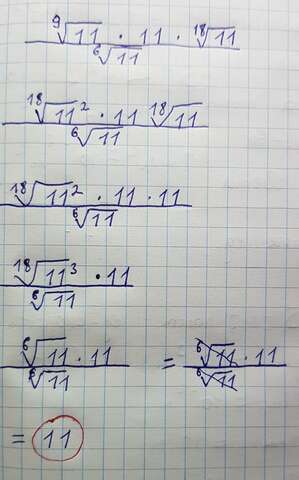 ⁹√11 · 11 · ¹⁸√11
⁶√11
¹⁸√11² · 11 ¹⁸√11
⁶√11
¹⁸√11² · 11 · 11
⁶√11
¹⁸√11³ · 11
⁶√11
⁶√11 · 11 = ⁶√11 · 11
⁶√11 ⁶√11
= 11